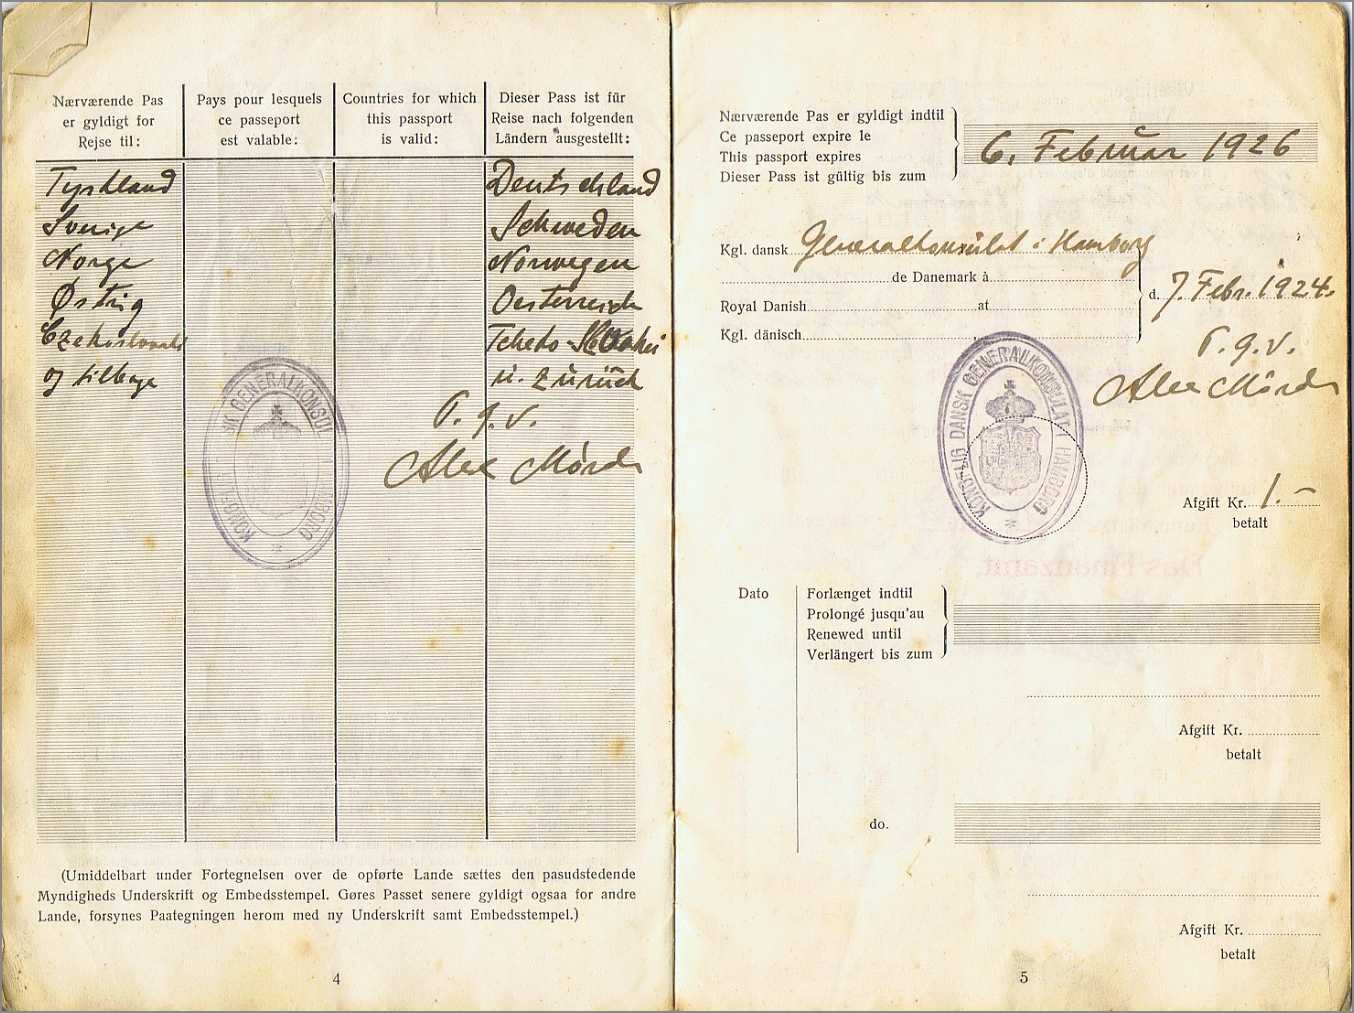 Nærværende Pas
er gyldigt for
Rejse til:
Pays pour lesquels
ce passeport
est valable:
Countries for which
this passport
is valid:
Dieser Pass ist für
Reise nach folgenden
Ländern ausgestellt:
Tyskland
Sverige
Norge
Østrig
og tilbage
Deutschland
Schweden
Norwegen
Oesterreich
u. zurück
KONGELIG DANSK GENERALKONSULAT I HAMBORG
(Umiddelbart under Fortegnelsen over de opførte Lande sættes den pasudstedende
Myndigheds Underskrift og Embedsstempel. Gøres Passet senere gyldigt ogsaa for andre
Lande, forsynes Paategningen herom med ny Underskrift samt Embedsstempel.)
4
Nærværende Pas er gyldigt indtil
Ce passeport expire le
This passport expires
Dieser Pass ist gültig bis zum
6. Februar 1926
Kgl. dansk Generalkonsulat i Hamborg
de Danemark à
Royal Danish at
Kgl. dänisch
d. 7. Febr. 1924.
KONGELIG DANSK GENERALKONSULAT I HAMBORG
Afgift Kr. 1.-
betalt
Dato
Forlænget indtil
Prolongé jusqu'au
Renewed until
Verlängert bis zum
Afgift Kr.
betalt
do.
Afgift Kr.
betalt
5